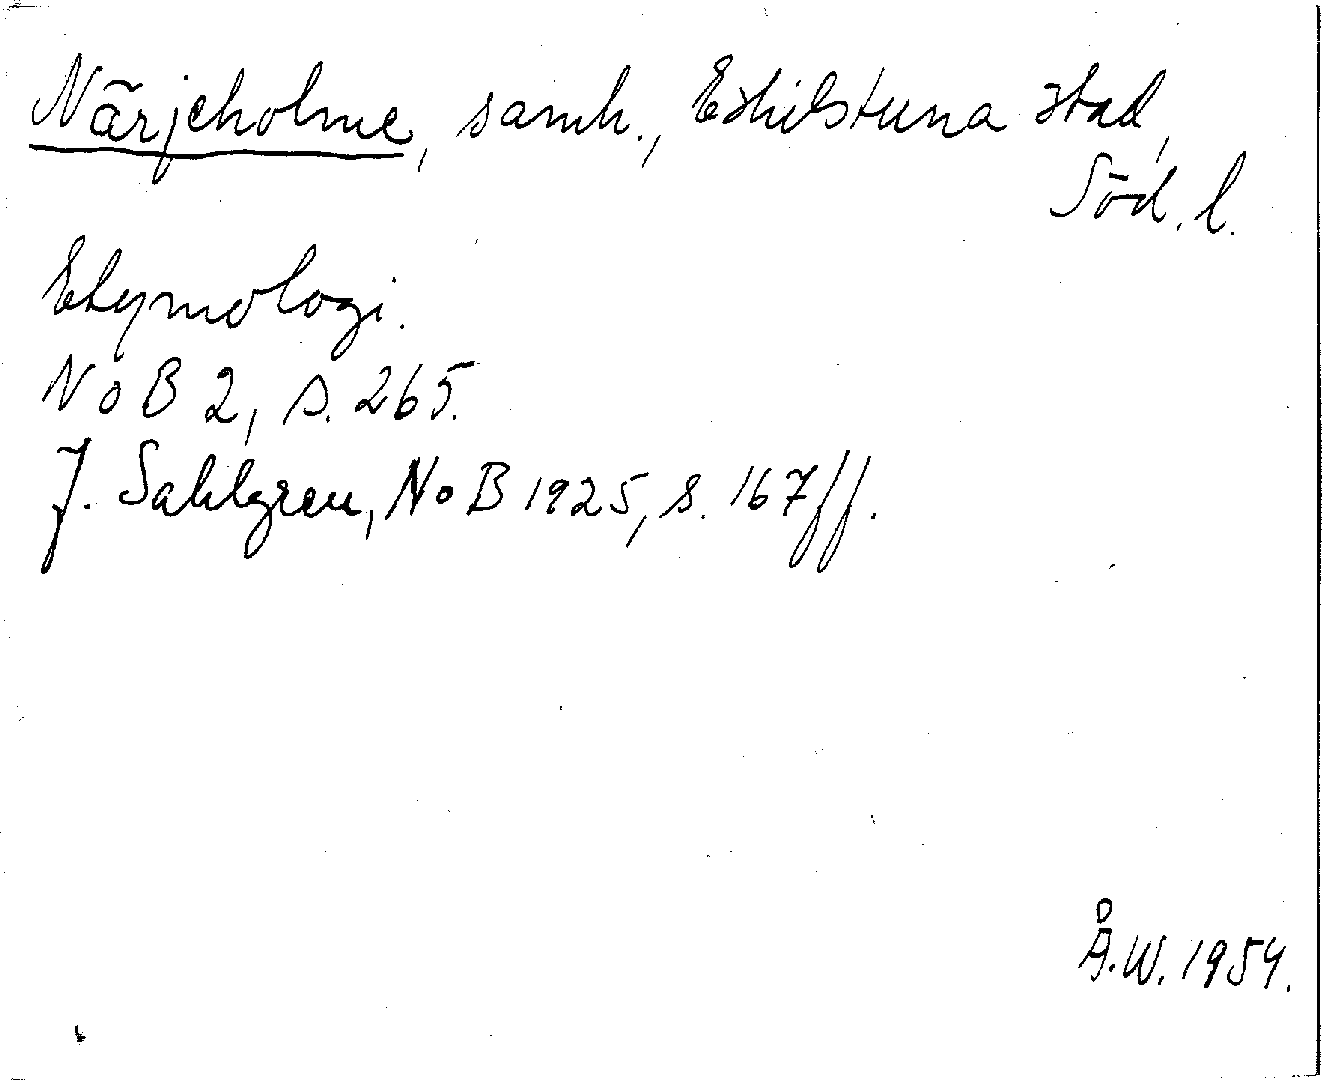 Närjeholme, samh., Eskilstuna stad,
Söd. l.
Etymologi.
NoB 2, s. 265.
J. Sahlgren, NoB 1925, s. 167 ff.
Å.W. 1954.